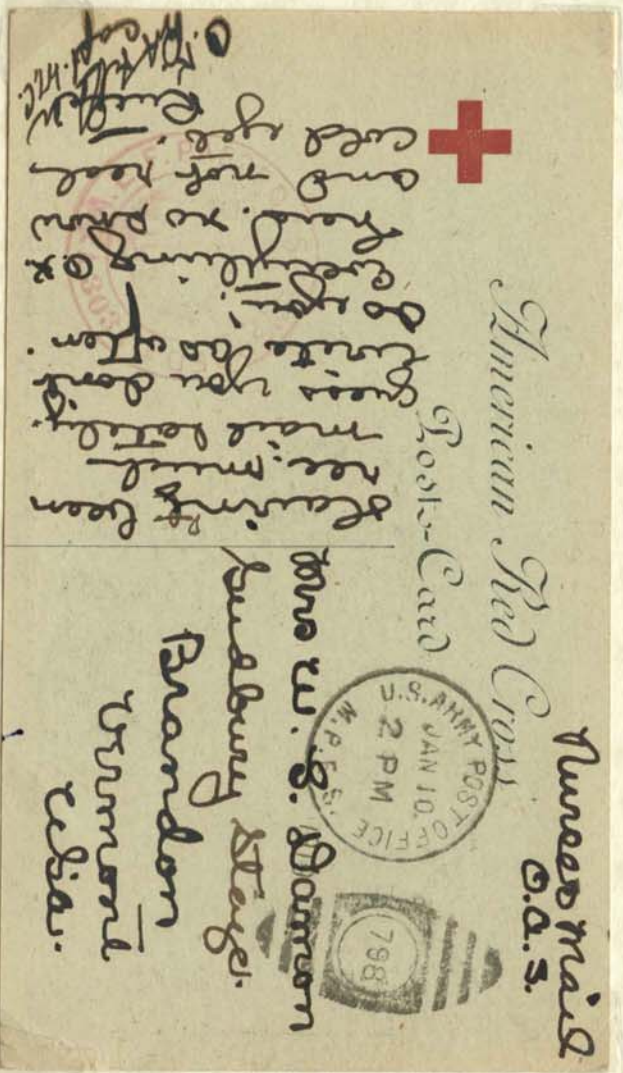 American Red Cross
Post-Card
Nurses Mail
O.A.S.
U.S. ARMY POST OFFICE
M.P.E.S.
JAN 10.
2 PM
798
Mrs W. S. Damon
Sudbury Stage.
Brandon
Vermont
USA.
Havin't been
rec. much
mail lately.
guess you dont
write too often.
do you!
Everything o.k.
here. no snow
and not real
cold yet.
Capt. M.C.
803